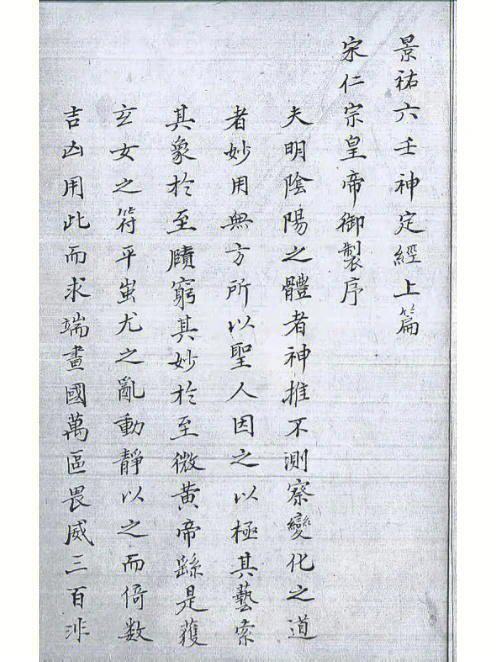 景祐六壬神定經上篇
宋仁宗皇帝御製序
夫明陰陽之體者神推不測察變化之道
者妙用無方所以聖人因之以極其藝索
其象於至賾窮其妙於至微黃帝繇是獲
玄女之符平蚩尤之亂動靜以之而倚數
吉凶用此而求端畫國萬區畏威三百沠